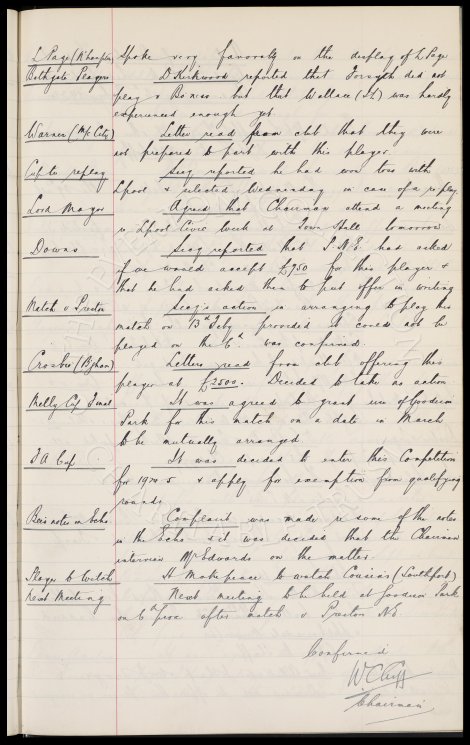 L Page (N'hampton) Spoke very favorably on the display of L Page
Bathgate Players D Kirkwood reported that Forsyth did not
play v Bo'ness but that Wallace (I.L) was hardly
experienced enough yet
Warner (M/c City) Letter read from club that they were
not prepared to part with this player.
Cup tie replay Secy reported he had won toss with
L'pool & selected Wednesday in case of a replay
Lord Mayor Agreed that Chairman attend a meeting
re L'pool Civic Week at Town Hall tomorrow
Downs Secy reported that P.N.E. had asked
if we would accept £750 for this player &
that he had asked them to put offer in writing
Match v Preston Secy's action in arranging to play this
match on 13th Feby provided it could not be
played on the 6th was confirmed.
Crosbie (B'ham) Letters read from club offering this
player at £2500. Decided to take no action
Melly Cup Final It was agreed to grant use of Goodison
Park for this match on a date in March
to be mutually arranged
F A Cup It was decided to enter this Competition
for 1924 5 & apply for exemption from qualifying
rounds
Bee's notes in Echo Complaint was made re some of the notes
in the Echo & it was decided that the Chairman
interview Mr Edwards on the matter.
Player to Watch H Makepeace to watch Cousins (Southport)
Next Meeting Next meeting to be held at Goodison Park
on 6th prox after match v Preston N.E.
Confirmed
W C Cuff
Chairman